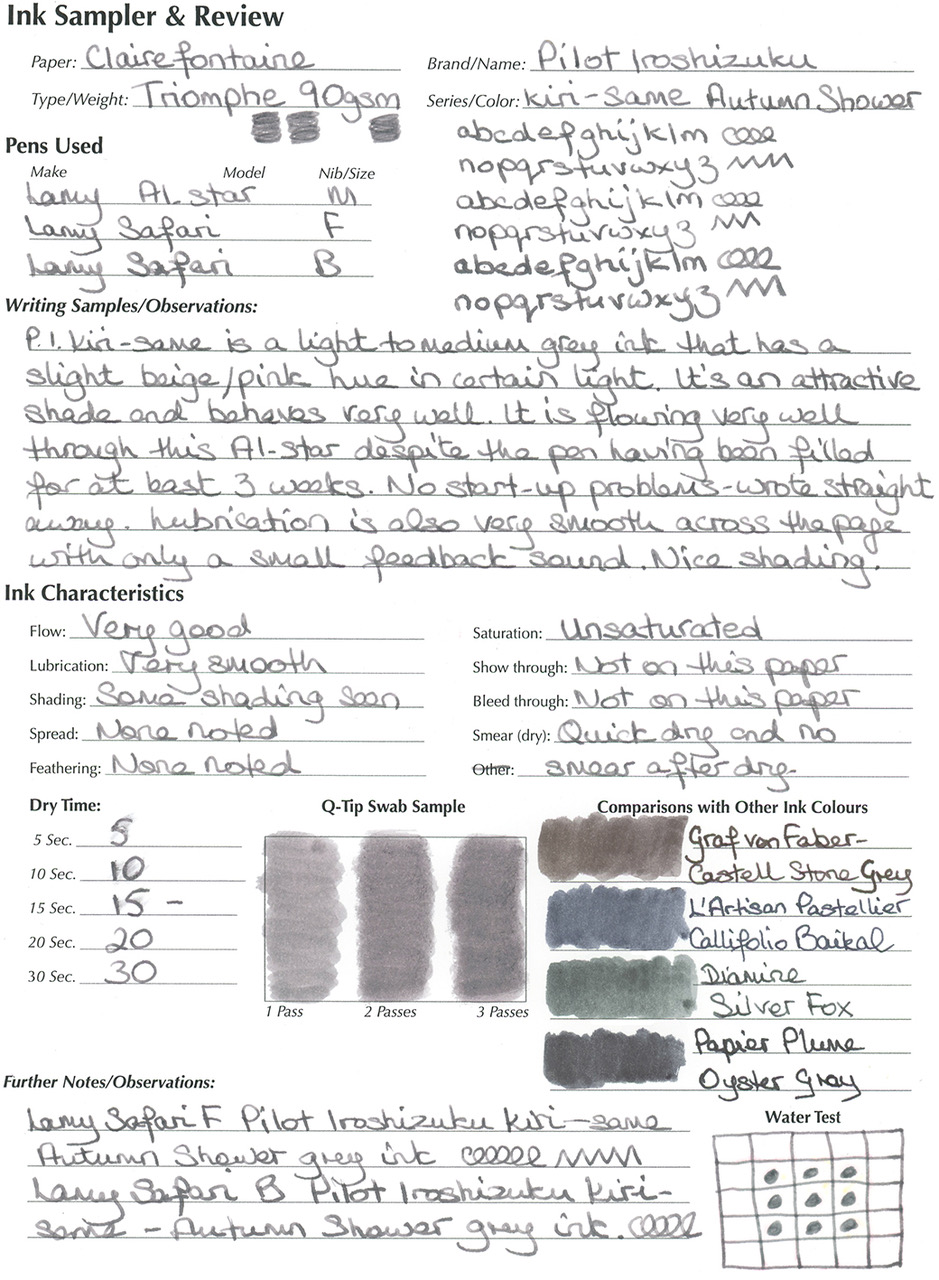 Ink Sampler & Review
Paper: Clairefontaine
Type/Weight: Triomphe 90gsm
Brand/Name: Pilot Iroshizuku
Series/Color: Kiri-same Autumn Shower
abcdefghijklm
nopqrstuvwxyz
abcdefghijklm
nopqrstuvwxyz
abcdefghijklm
nopqrstuvwxyz
Pens Used
Make Model Nib/Size
Lamy Al-star M
Lamy Safari F
Lamy Safari B
Writing Samples/Observations:
P.I. Kiri-same is a light to medium grey ink that has a
slight beige/pink hue in certain light. It's an attractive
shade and behaves very well. It is flowing very well
through this Al-Star despite the pen having been filled
for at least 3 weeks. No start-up problems-wrote straight
away. Lubrication is also very smooth across the page
with only a small feedback sound. Nice shading.
Ink Characteristics
Flow: Very good
Lubrication: Very smooth
Shading: Some shading seen
Spread: None noted
Feathering: None noted
Saturation: Unsaturated
Show through: Not on this paper
Bleed through: Not on this paper
Smear (dry): Quick dry and no
Other: smear after dry.
Dry Time:
5 Sec. 5
10 Sec. 10
15 Sec. 15 -
20 Sec. 20
30 Sec. 30
Q-Tip Swab Sample
1 Pass 2 Passes 3 Passes
Comparisons with Other Ink Colours
Graf von Faber-
Castell Stone Grey
L'Artisan Pastellier
Callifolio Baikal
Diamine
Silver Fox
Papier Plume
Oyster Gray
Further Notes/Observations:
Lamy Safari F Pilot Iroshizuku Kiri-same
Autumn Shower grey ink
Lamy Safari B Pilot Iroshizuku Kiri-
same - Autumn Shower grey ink.
Water Test